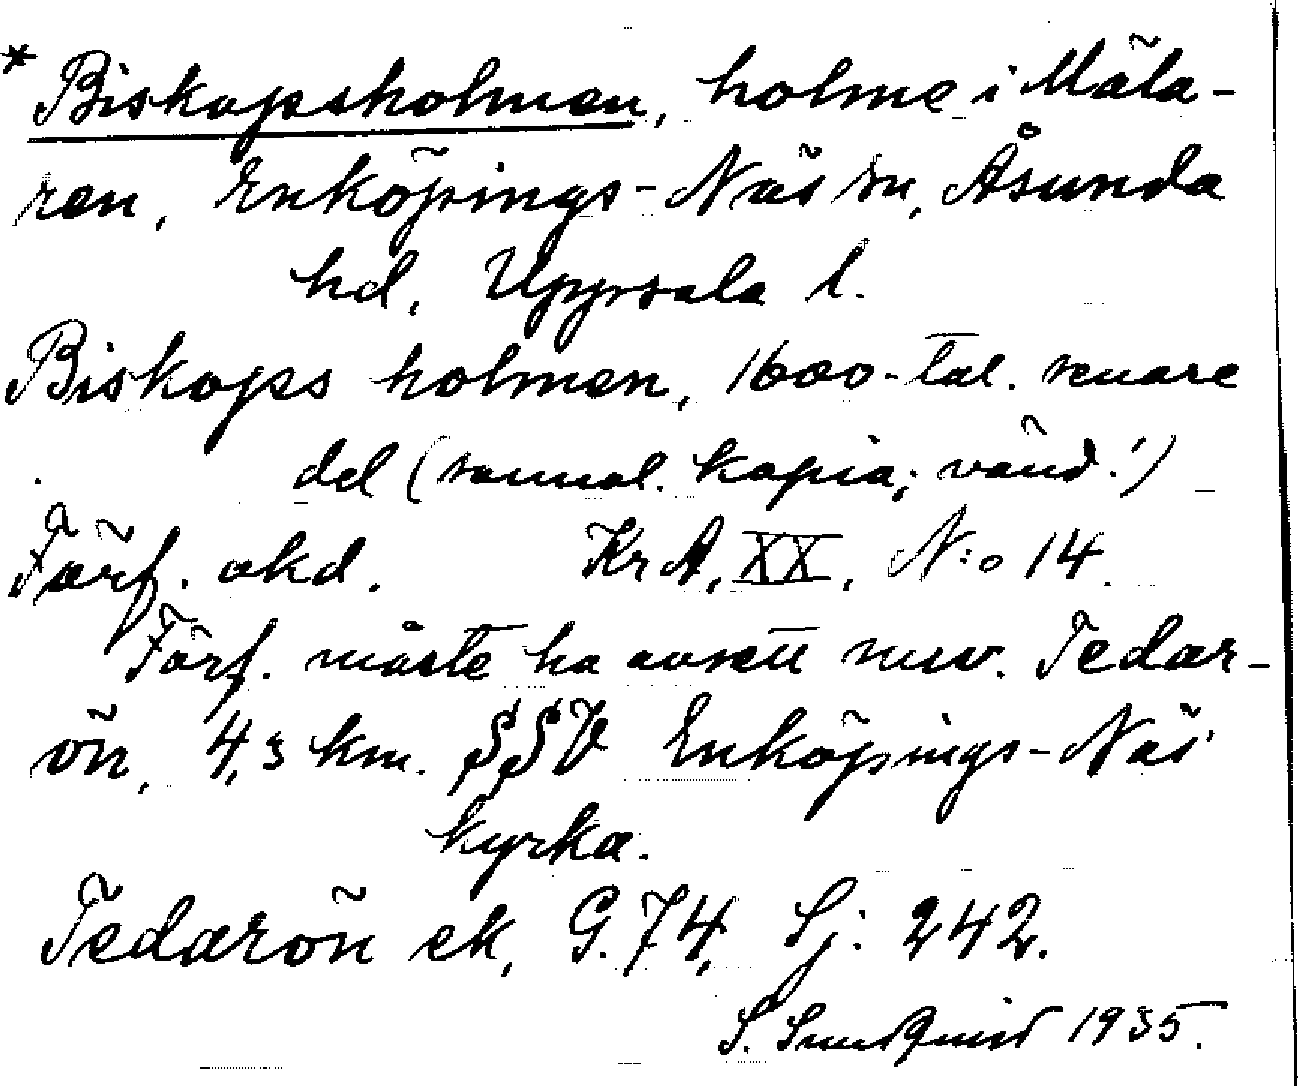 * Biskopsholmen, holme i Mäla-
ren, Enköpings-Näs sn, Åsunda
hd, Uppsala l.
Biskops holmen, 1600-tal. senare
del (samol. kopia; vänd!)
Förf. okd. KrA, XX, N:o 14.
Förf. måste ha avsett nuv. Tedar-
ön, 4,3 km. SSV Enköpings-Näs
kyrka.
Tedarön ek, G. 74, Sj: 242.
S. Sundquist 1935.